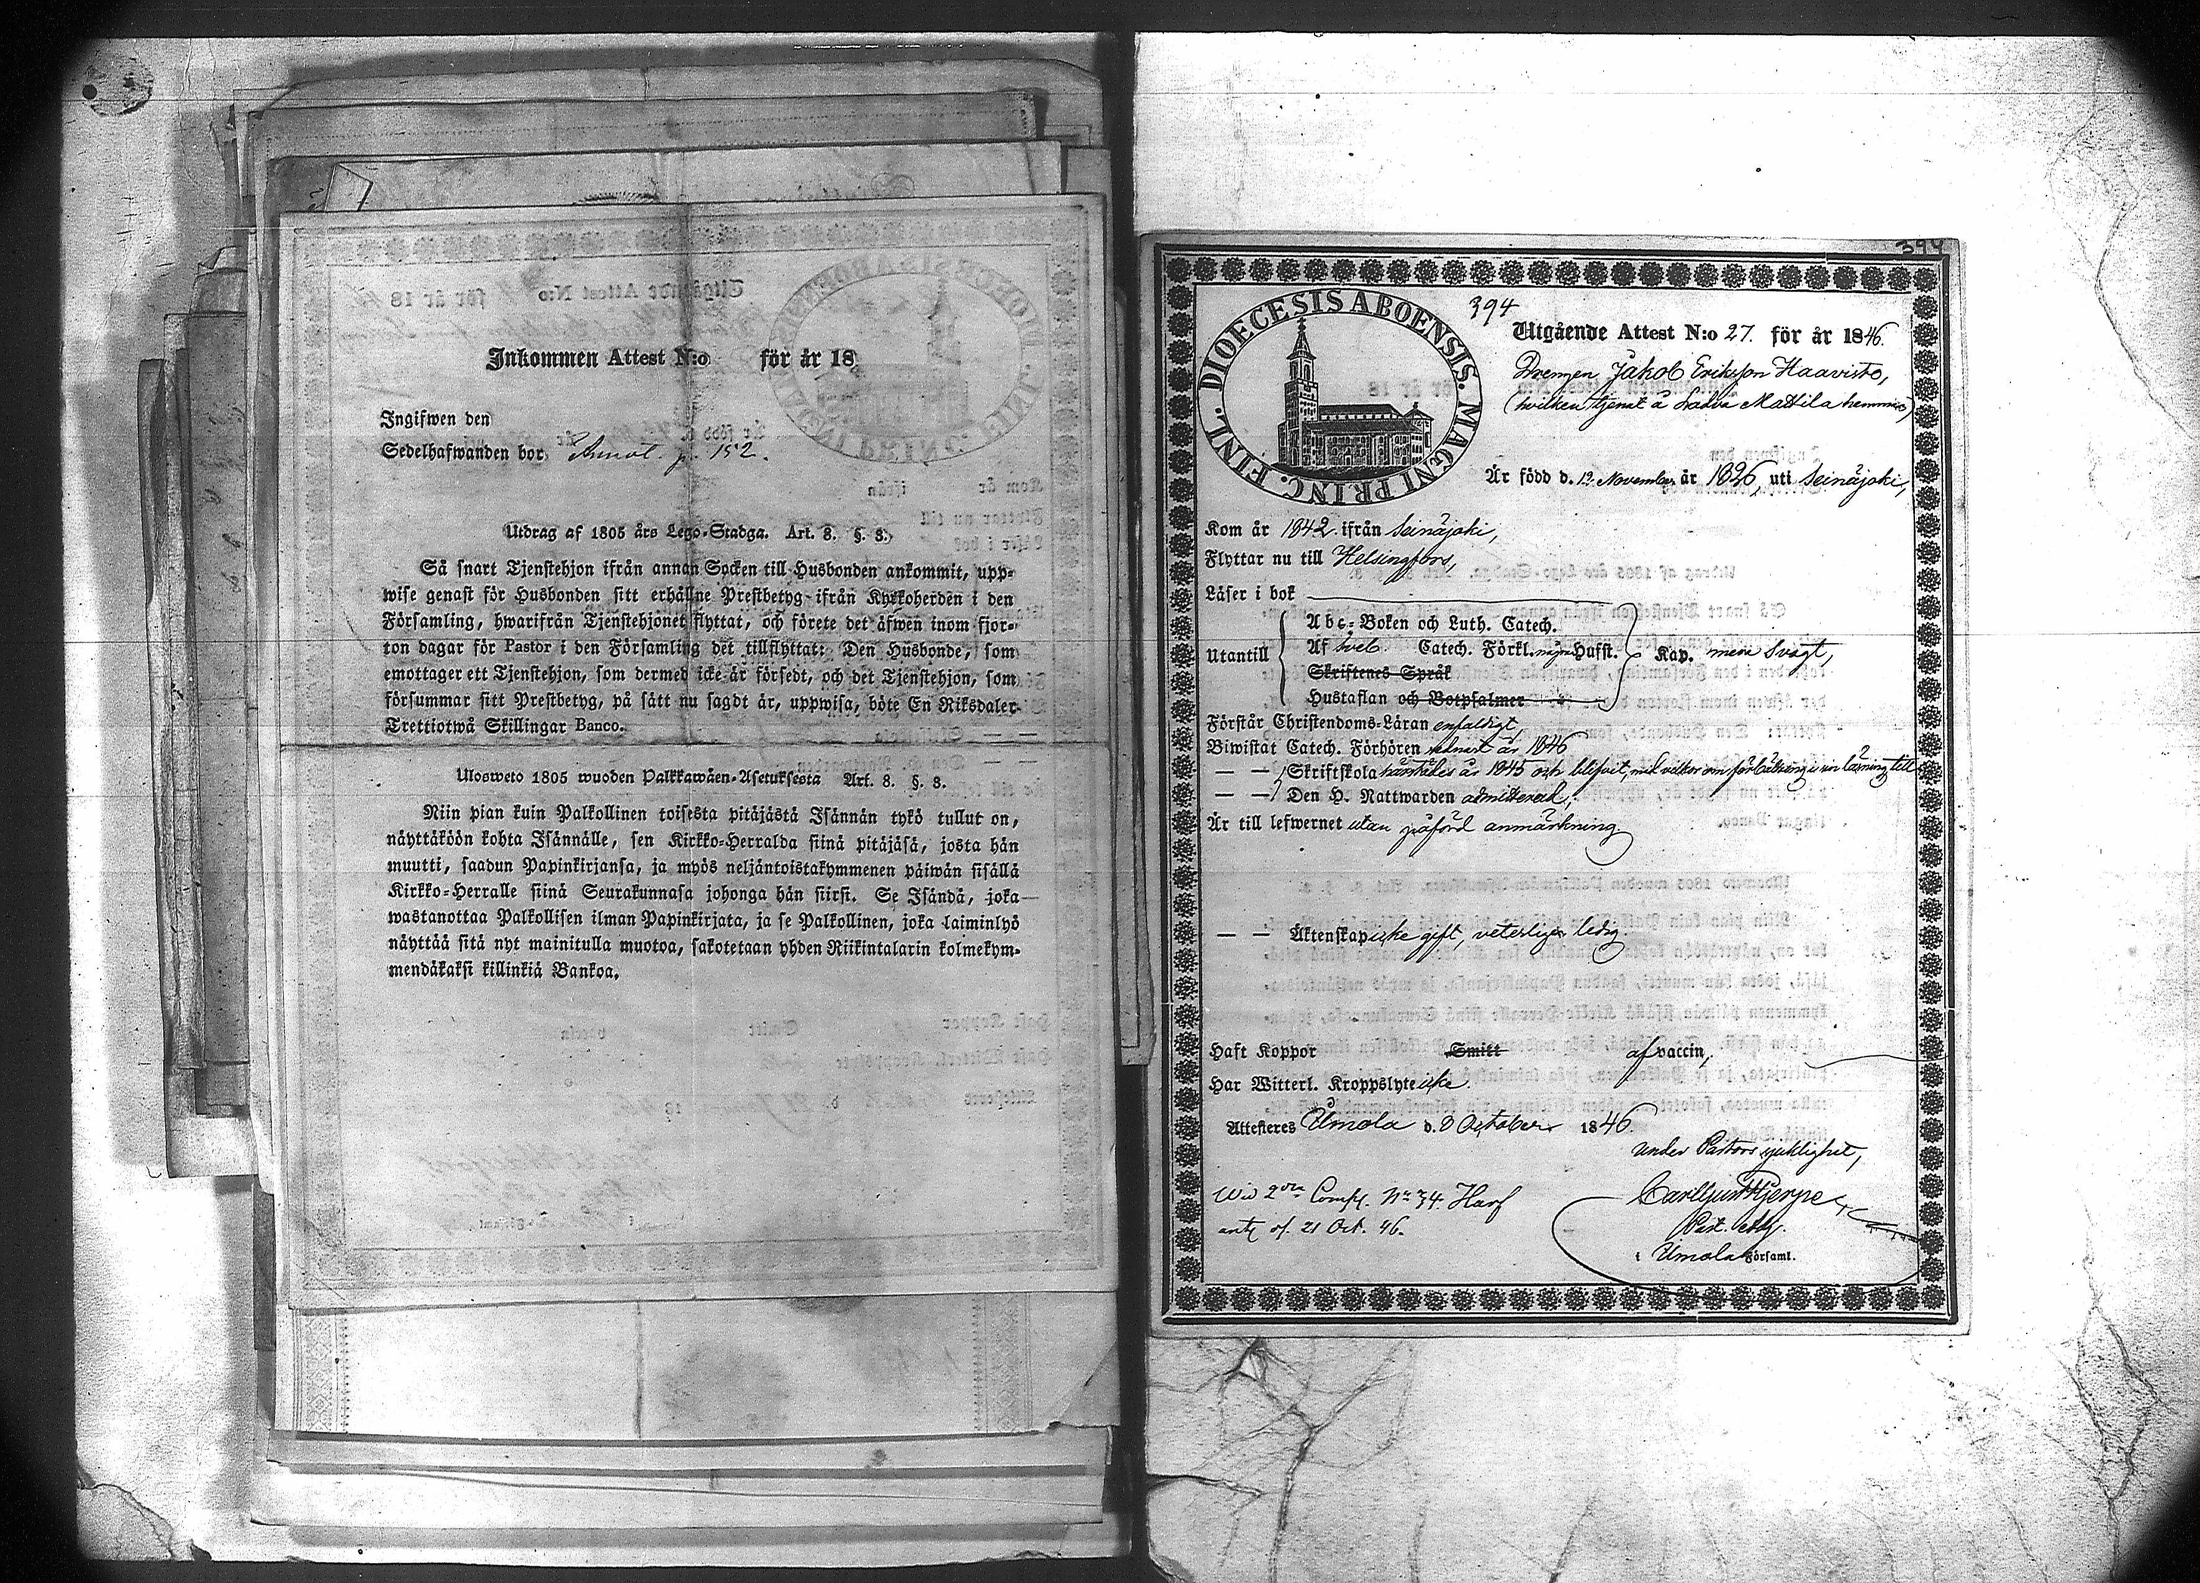 Inkommen Attest N:o för år 18
Ingifwen den
Sedelhafwanden bor Annot. p. 152.
Utdrag af 1805 års Lego-Stadga. Art. 8. §. 8.
Så snart Tjenstehjon ifrån annan Socken till Husbonden ankommit, upp-
wise genast för Husbonden sitt erhållne Prestbetyg ifrån Kyrkoherden i den
Församling, hwarifrån Tjenstehjonet flyttat, och förete det äfwen inom fjor-
ton dagar för Pastor i den Församling det tillflyttat: Den Husbonde, som
emottager ett Tjenstehjon, som dermed icke är försedt, och det Tjenstehjon, som
försummar sitt Prestbetyg, på sätt nu sagdt är, uppwisa, böte En Riksdaler
Trettiotwå Skillingar Banco.
Ulosweto 1805 wuoden Palkkawäen-Asetuksesta Art. 8. §. 8.
Niin pian kuin Palkollinen toisesta pitäjästä Isännän tykö tullut on,
näyttäköön kohta Isännälle, sen Kirkko-Herralda siinä pitäjäsä, josta hän
muutti, saadun Papinkirjansa, ja myös neljäntoistakymmenen päiwän sisällä
Kirkko-Herralle siinä Seurakunnasa johonga hän siirsi. Se Isändä, joka
wastanottaa Palkollisen ilman Papinkirjata, ja se Palkollinen, joka laiminlyö
näyttää sitä nyt mainitulla muotoa, sakotetaan yhden Riikintalarin kolmekym-
mendäkaksi killinkiä Bankoa.
394
394
DIOECESIS ABOENSIS. MAGNI PRINC. FINL.
Utgående Attest N:o 27. för år 1846.
Drengen Jakob Eriksson Haavisto,
(hvilken tjenat å Ladva Mattila hemman)
Är född d. 13. November år 1826, uti Seinäjoki,
Kom år 1842. ifrån Seinäjoki,
Flyttar nu till Helsingfors,
Läser i bok
Abc-Boken och Luth. Catech.
Utantill Af Sveb. Catech. Förkl. några Hufst. Kap. mera svagt,
Skriftenes Språk
Hustaflan och Botpsalmer
Förstår Christendoms-Läran enfaldigt,
Biwistat Catech. Förhören sednast år 1846
— — Skriftskola härstädes år 1845 och blifvit, med vilkor om förbättring i sin läsning till
— — Den H. Nattwarden admitterad,
Är till lefwernet utan påförd anmärkning.
— — Äktenskap icke gift, veterligen ledig.
Haft Koppor Smitt af vaccin,
Har Witterl. Kroppslyte icke.
Attesteres Ilmola d. 8 October 1846.
under Pastors sjuklighet,
Carl Gust Hjerpe
Past. Adj.
i Ilmola Församl.
Wid 2dra Comp. No 34. Harf
antg. d. 21 Oct. 46.